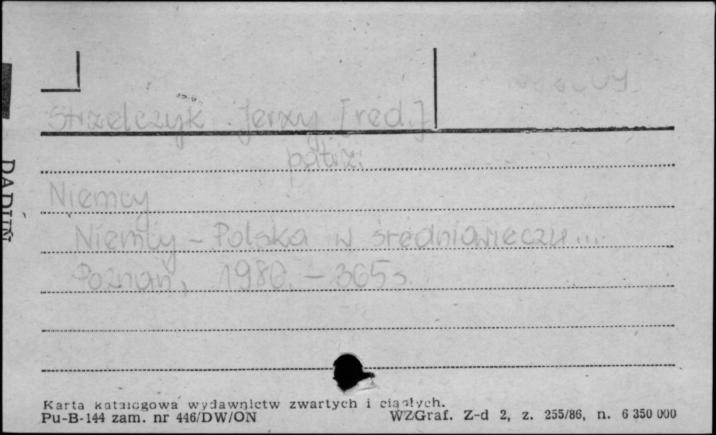 Strzelczyk Jerzy [red.]
patrz:
Niemcy
Niemcy – Polska w średniowieczu...
Poznań, 1986. – 365 s.
Karta katalogowa wydawnictw zwartych i ciągłych.
Pu-B-144 zam. nr 446/DW/ON WZGraf. Z-d 2, z. 255/86, n. 6 350 000